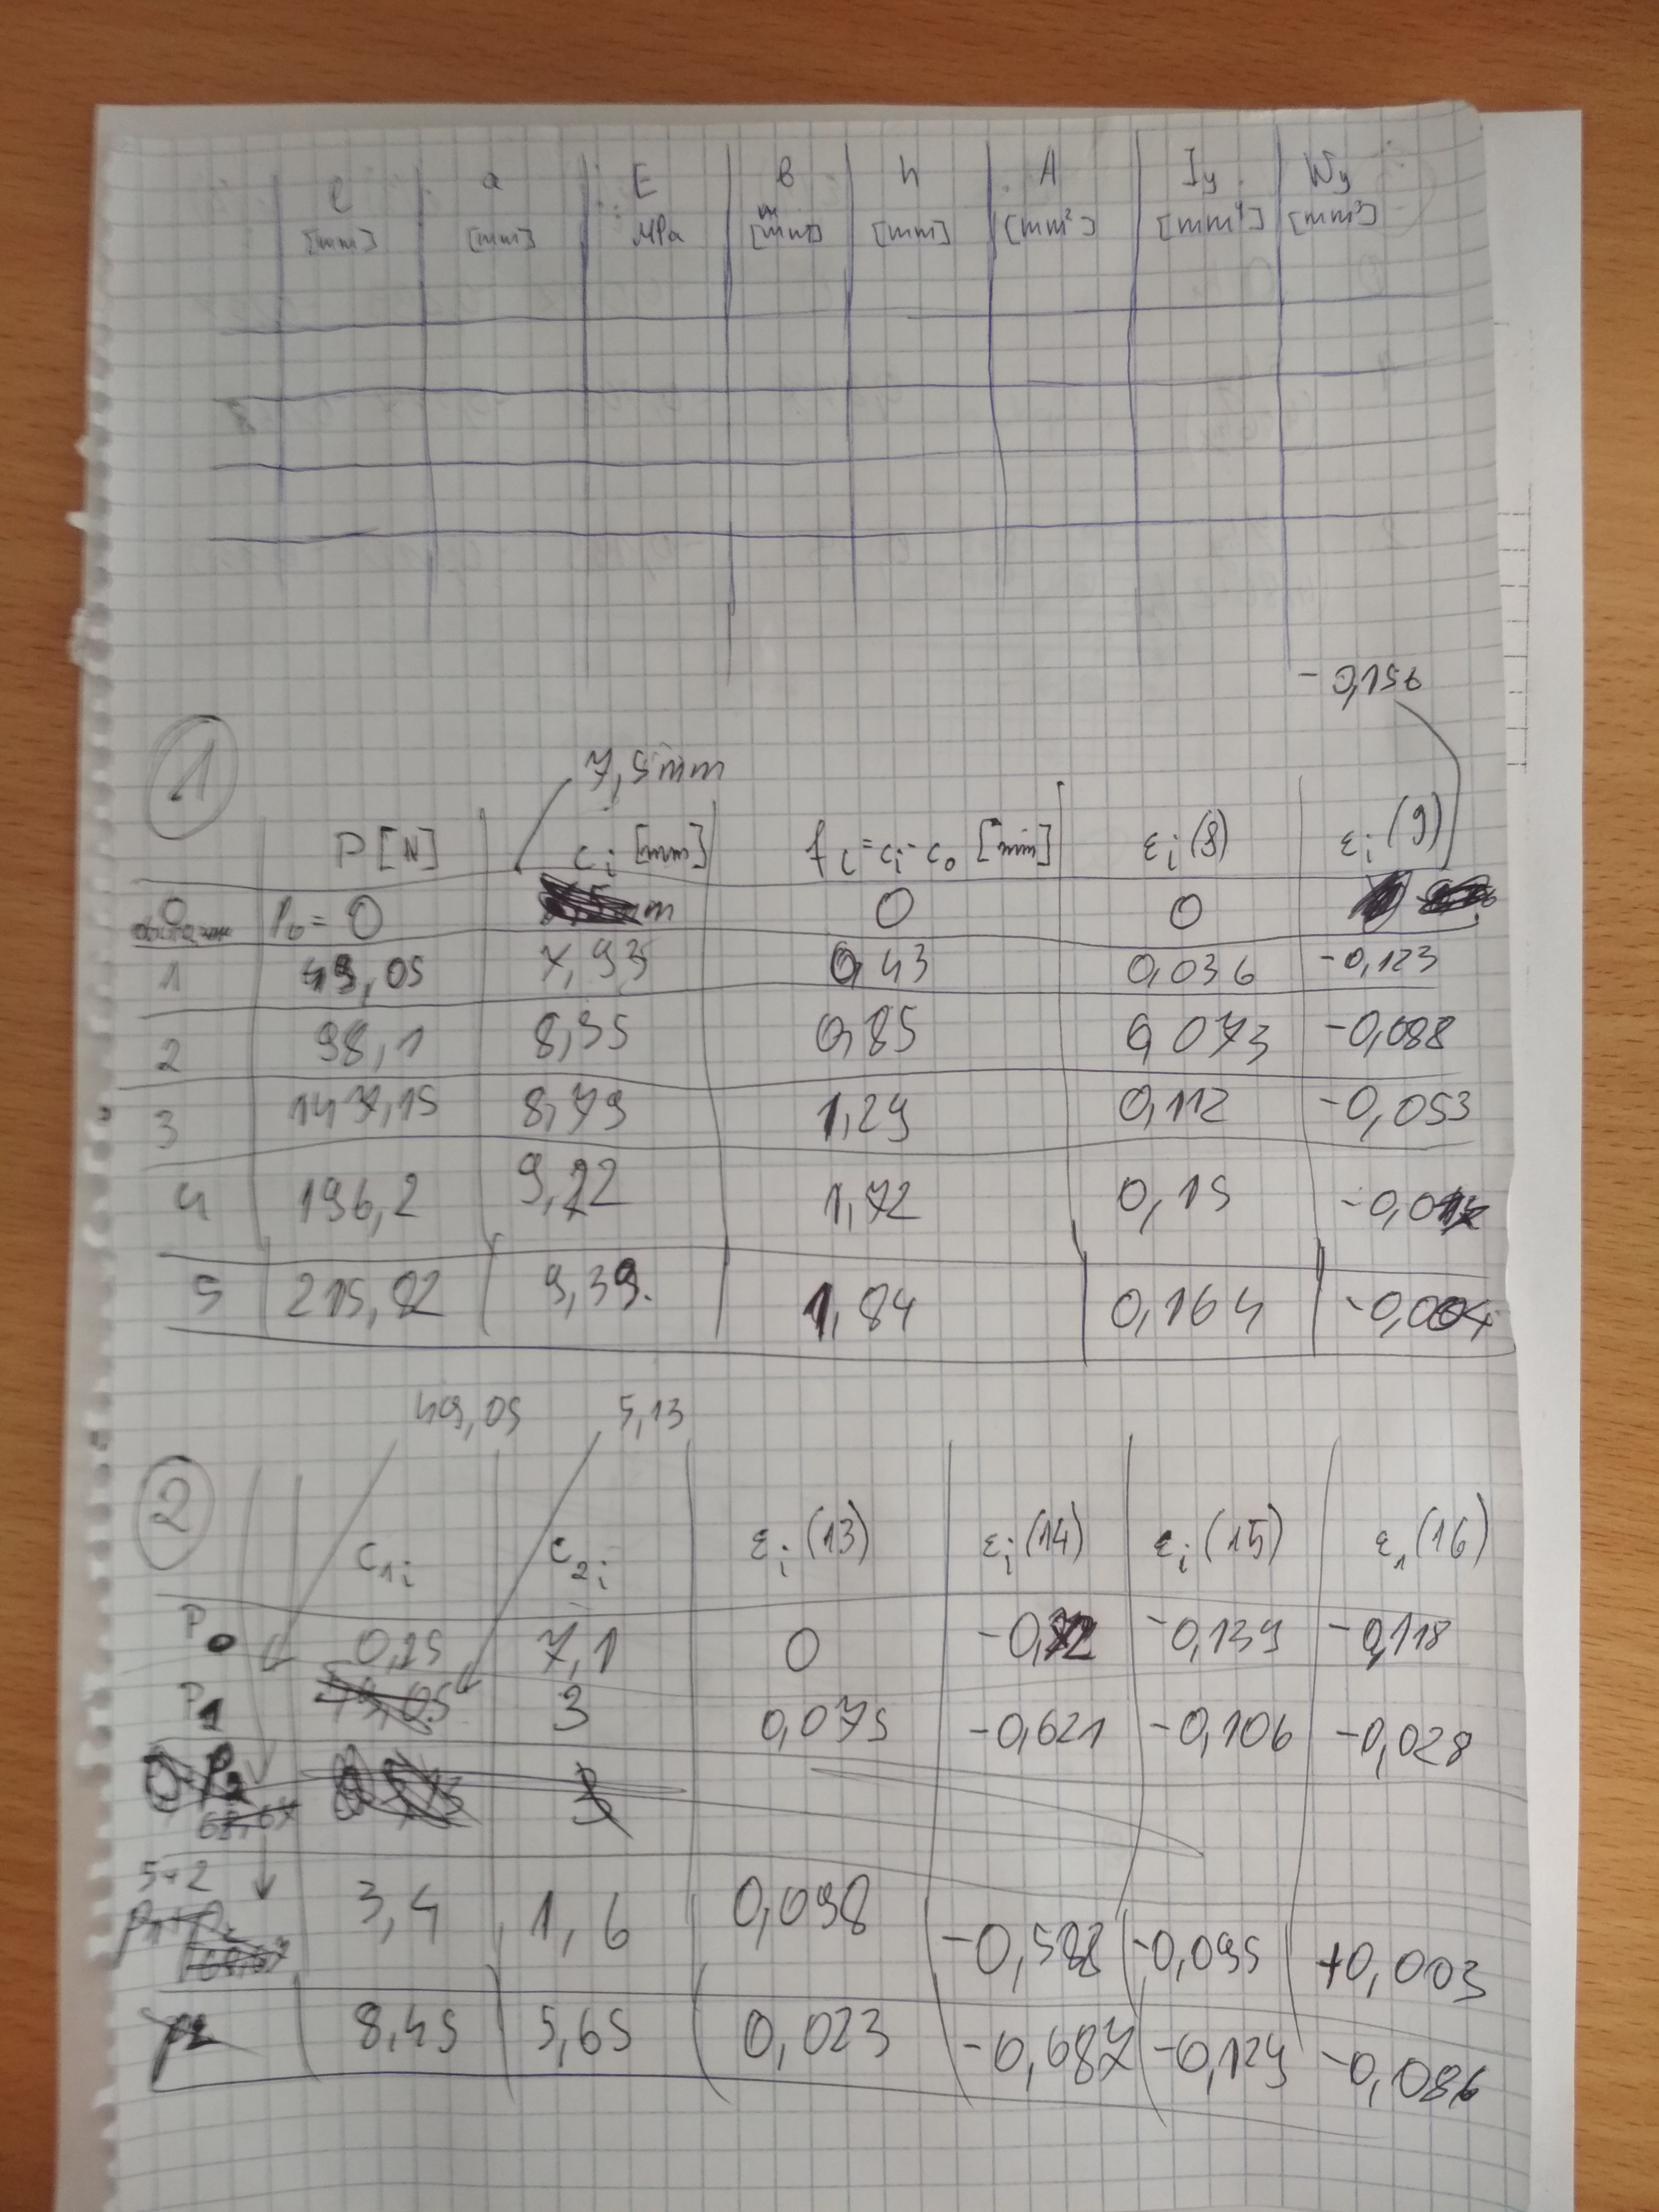 l a E b h A Iy Wy
[mm] [mm] MPa [mm] [mm] [mm²] [mm⁴] [mm³]
-0,156
1
7,5mm
P[N] ci [mm] fi=ci-c0 [mm] εi(8) εi(9)
0 P0=0 0 0
1 49,05 7,93 0,43 0,036 -0,123
2 98,1 8,35 0,85 0,073 -0,088
3 147,15 8,79 1,29 0,112 -0,053
4 196,2 9,22 1,72 0,15
5 215,82 9,39 1,84 0,164 -0,004
49,05 5,13
2
c1i c2i εi(13) εi(14) εi(15) ε1(16)
P0 0,25 7,1 0 -0,139 -0,118
P1 3 0,075 -0,621 -0,106 -0,028
5+2
3,4 1,6 0,098 -0,588 -0,095 +0,003
8,45 5,65 0,023 -0,687 -0,129 -0,086